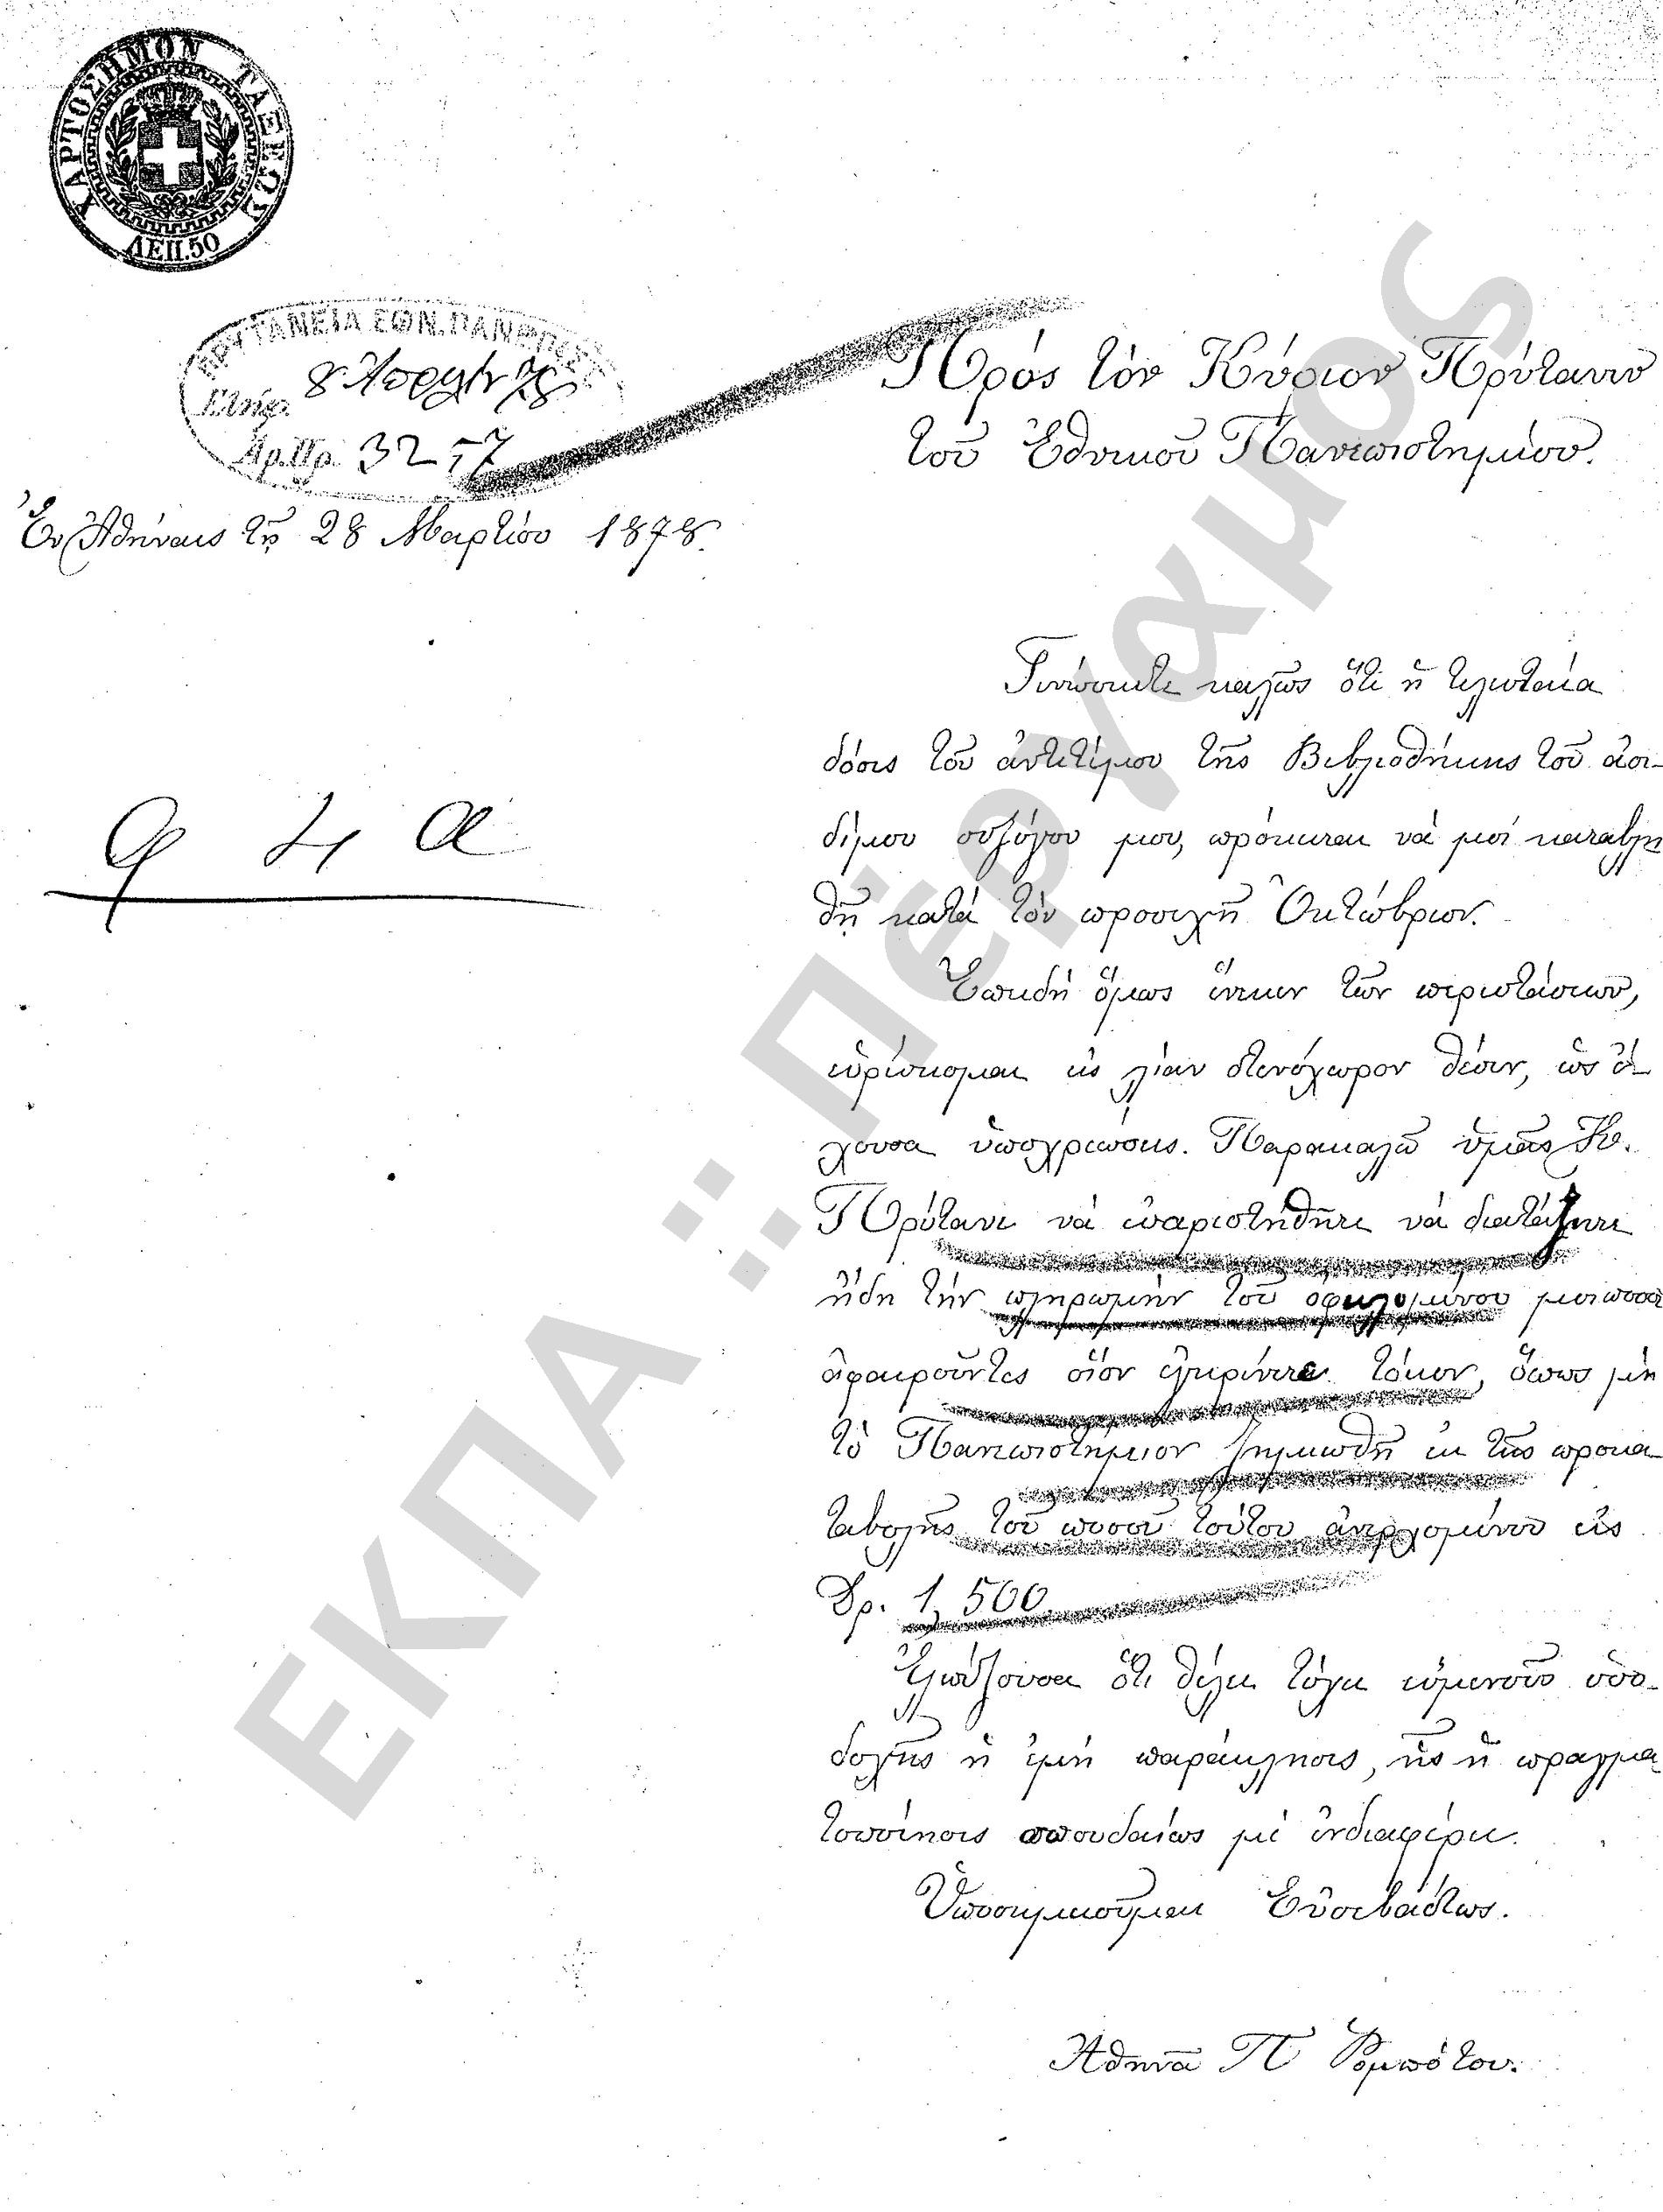 ΧΑΡΤΟΣΗΜΟΝ ΤΑΞΕΩΣ
ΛΕΠ.50
ΠΡΥΤΑΝΕΙΑ ΕΘΝ. ΠΑΝΕΠΙΣΤ
Ελήφ. 8 Απριλ 78
Αρ.Πρ. 3257
Πρός τόν Κύριον Πρύτανιν
τοῦ Ἐθνικοῦ Πανεπιστημίου.
Ἐν Ἀθήναις τῇ 28 Μαρτίου 1878.
Γινώσκετε καλῶς ὅτι ἡ τελευταία
δόσις τοῦ ἀντιτίμου τῆς Βιβλιοθήκης τοῦ ἀοι-
δίμου συζύγου μου, πρόκειται νά μοί καταβλη
θῇ κατά τόν προσεχῆ Ὀκτώβριον.
Ἐπειδή ὅμως ἕνεκεν τῶν περιστάσεων,
εὑρίσκομαι εἰς λίαν στενόχωρον θέσιν, ὡς ἔ-
χουσα ὑποχρεώσεις. Παρακαλῶ ὑμᾶς Κε.
Πρύτανι νά εὐαρεστηθῆτε νά διατάξητε
ἤδη τήν πληρωμήν τοῦ οφειλομένου μοι ποσοῦ
ἀφαιροῦντες οἷον ἐγκρίνετε τόκον, ὅπως μή
τό Πανεπιστήμιον ζημιωθῇ ἐκ τῆς προκα
ταβολῆς τοῦ ποσοῦ τούτου ἀνερχομένου εἰς
Δρ. 1,500
Ἐλπίζουσα ὅτι θέλει τύχει εὐμενοῦς ὑπο-
δοχῆς ἡ ἐμή παράκλησις, ἧς ἡ πραγμα-
τοποίησις σπουδαίως μέ ἐνδιαφέρει.
Ὑποσημειοῦμαι Εὐσεβάστως.
Ἀθηνᾶ Π Ρομπότου.
ΕΚΠΑ :: Πέργαμος